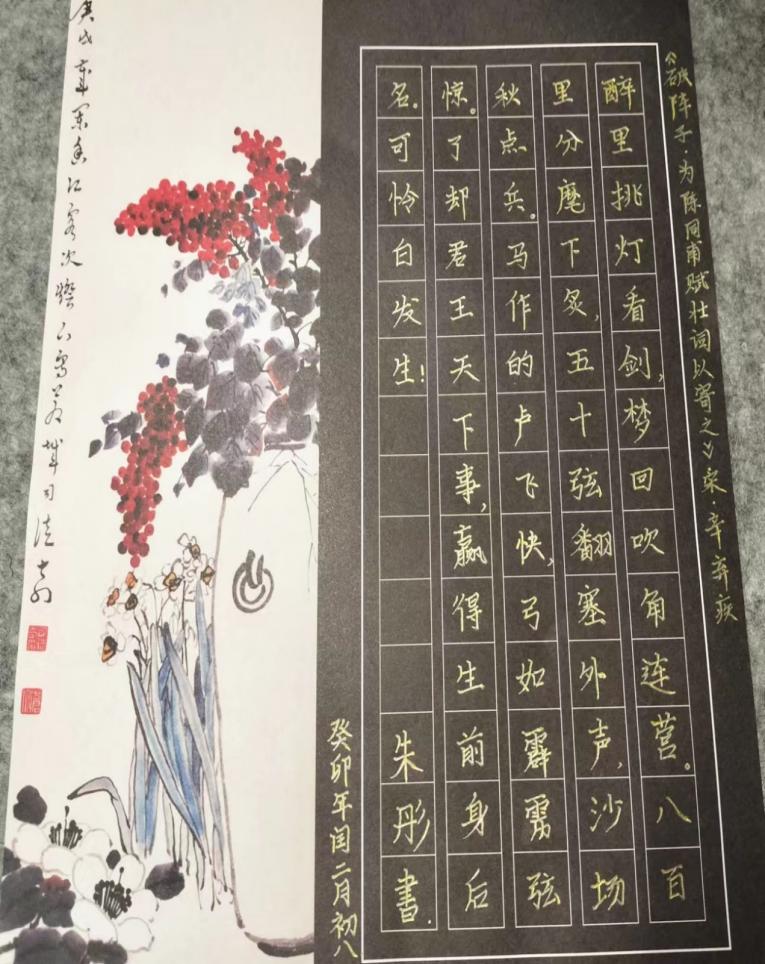 《破阵子·为陈同甫赋壮词以寄之》宋 辛弃疾
醉里挑灯看剑,梦回吹角连营。八百
里分麾下炙,五十弦翻塞外声,沙场
秋点兵。马作的卢飞快,弓如霹雳弦
惊。了却君王天下事,赢得生前身后
名。可怜白发生!朱彤書.
癸卯年闰二月初八